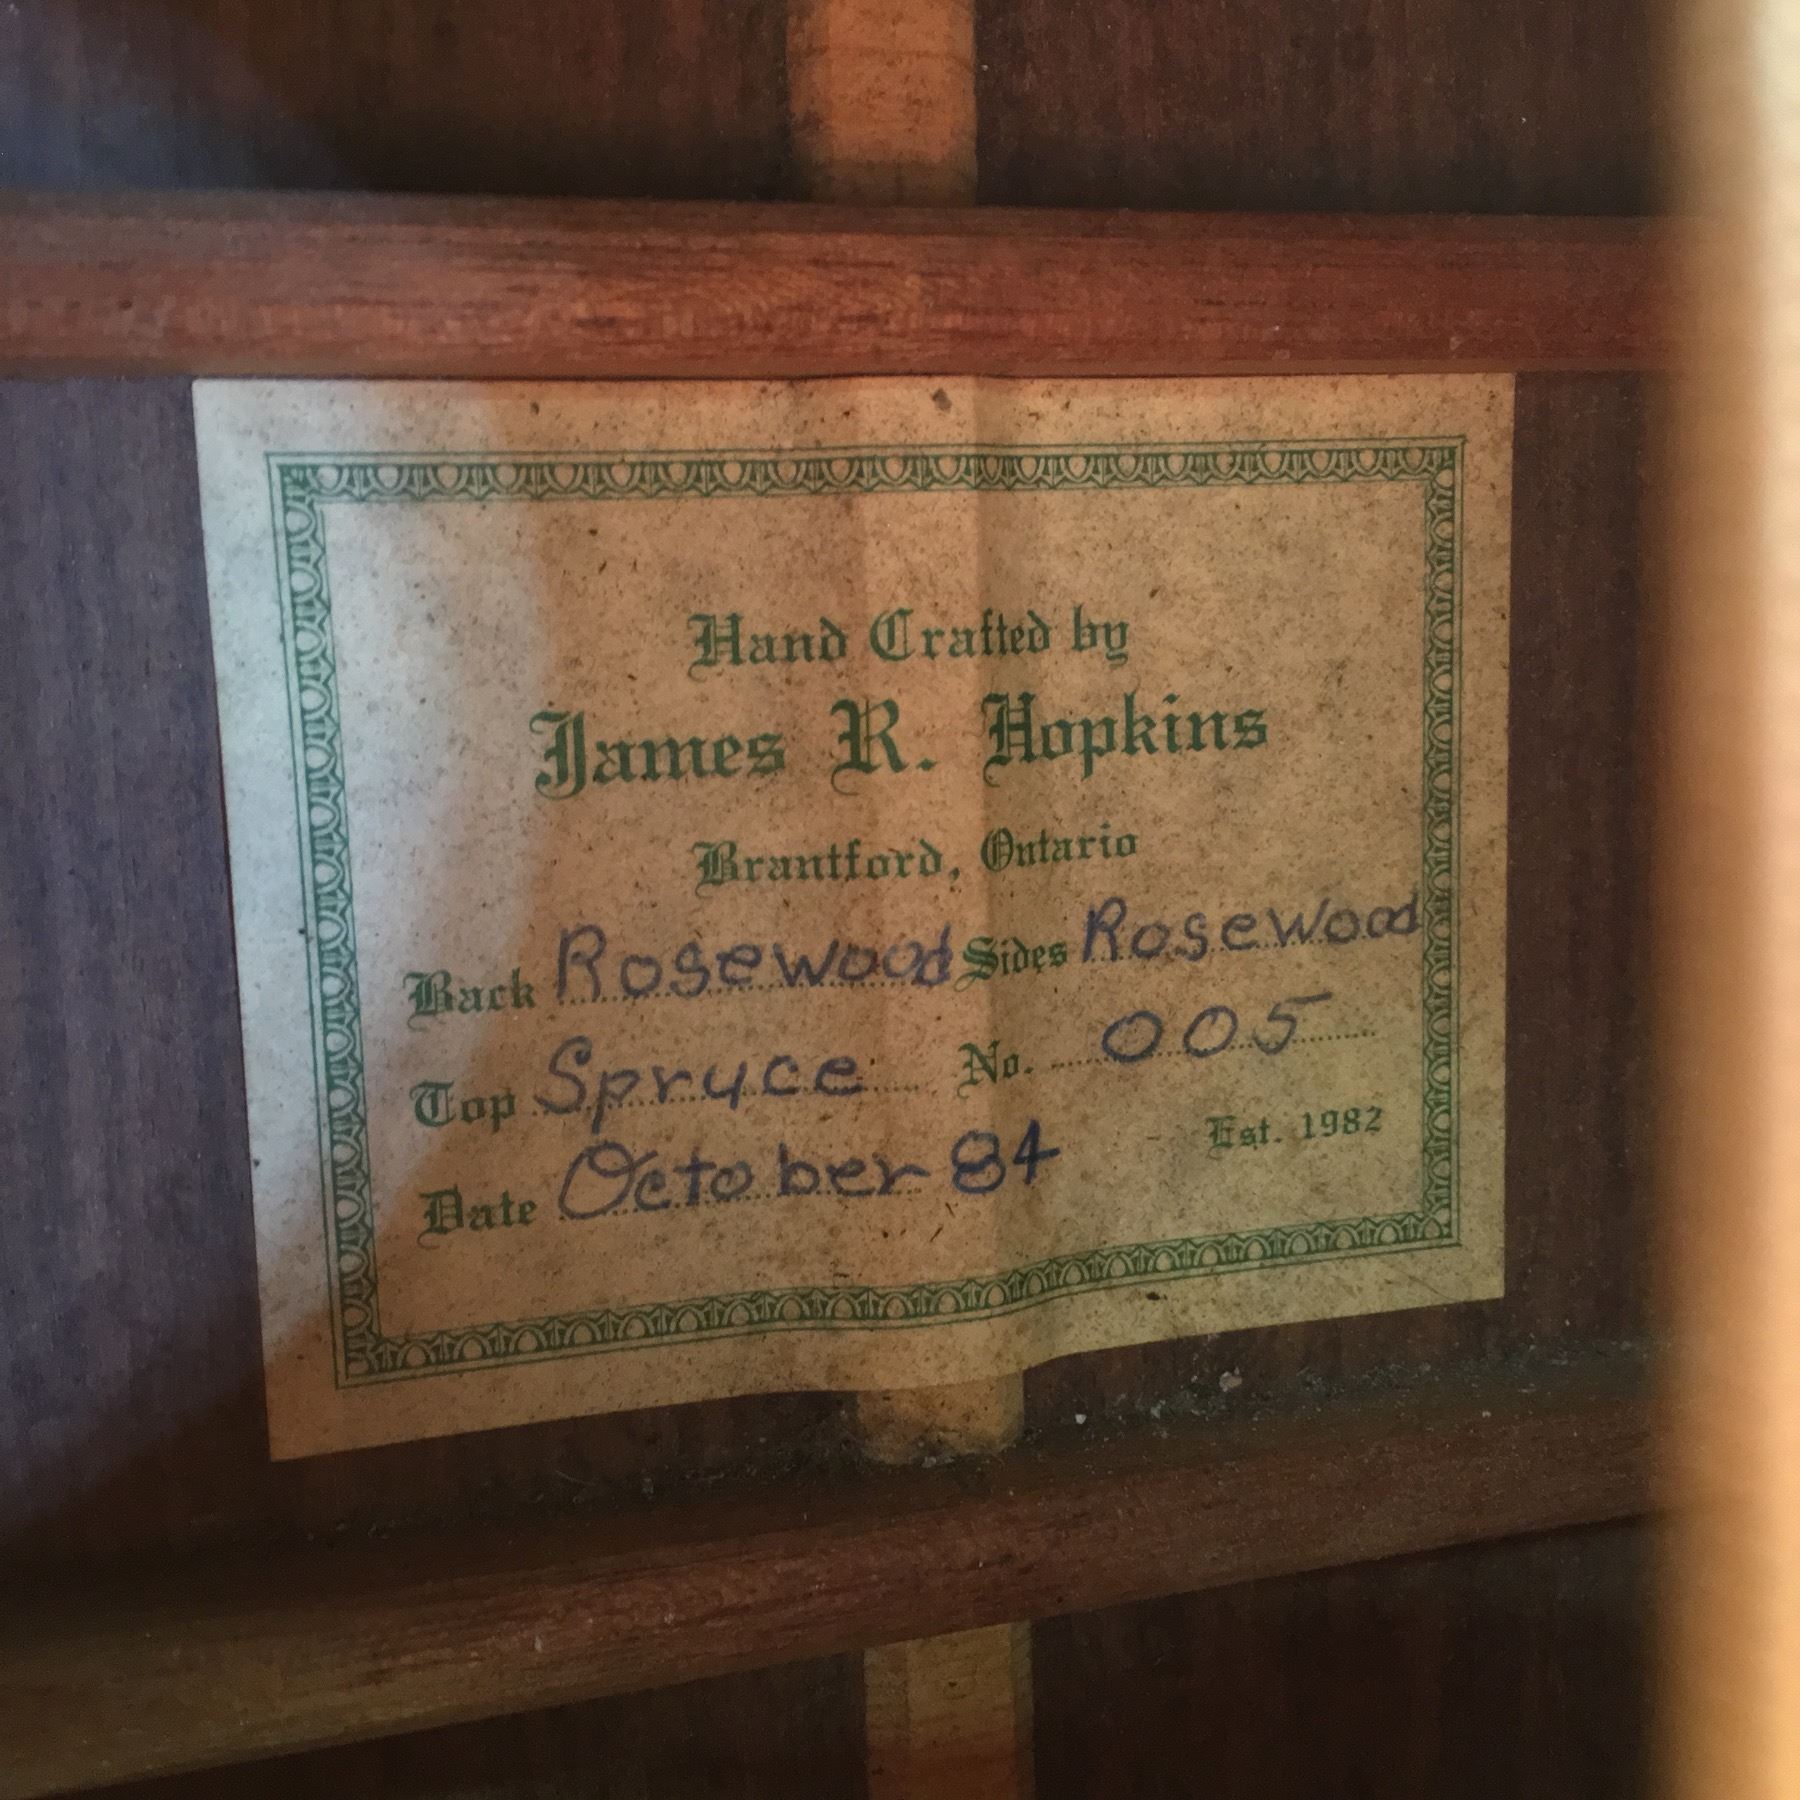 Hand Crafted by
James R. Hopkins
Brantford, Ontario
Back Rosewood Sides Rosewood
Top Spruce No. 005
Date October 84 Est. 1982